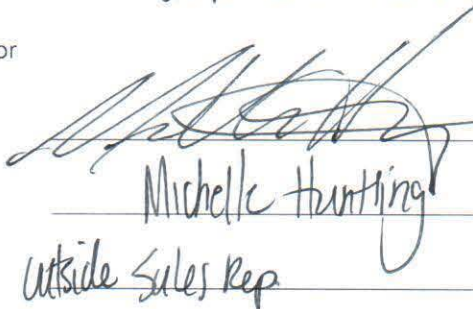 or
Michelle Huntling
utside Sales Rep